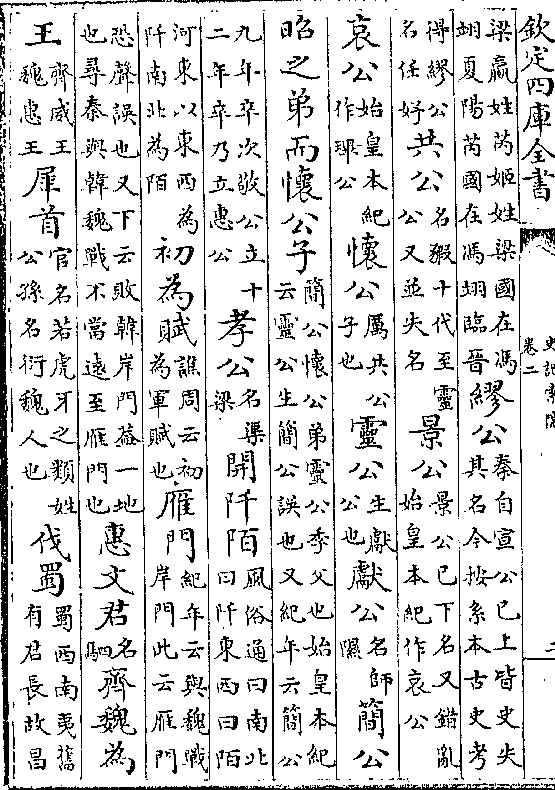 欽定四庫全書
史記索隱
卷二
二
梁嬴姓芮姬姓梁國在馮
翊夏陽芮國在馮翊臨晉
繆公
秦自宣公已上皆史失
其名今按系本古史考
得繆公
名任好
共公
名貑十代至靈
公又並失名
景公
景公已下名又錯亂
始皇本紀作哀公
哀公
始皇本紀
作公
懷公
厲共公
子也
靈公
生獻
公也
獻公
名師
隰
簡公
昭之弟而懷公子
簡公懷公弟靈公季父也始皇本紀
云靈公生簡公誤也又紀年云簡公
九年卒次敬公立十
二年卒乃立惠公
孝公
名渠
梁
開阡陌
風俗通曰南北
曰阡東西曰陌
河東以東西為
阡南北為陌
初為賦
譙周云初
為軍賦也
雁門
紀年云與魏戰
岸門此云雁門
恐聲誤也又下云敗韓岸門蓋一地
也尋秦與韓魏戰不當遠至雁門也
惠文君
名
駟
齊魏為
王
齊威王
魏惠王
犀首
官名若虎牙之類姓
公孫名衍魏人也
伐蜀
蜀西南夷舊
有君長故昌